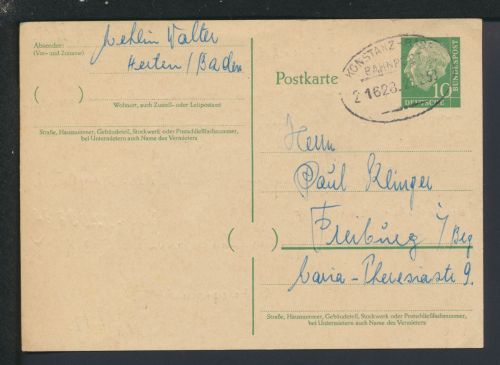 Absender:
(Vor- und Zuname)
Walter
Herten / Baden
Wohnort, auch Zustell- oder Leitpostamt
Straße, Hausnummer, Gebäudeteil, Stockwerk oder Postschließfachnummer,
bei Untermietern auch Name des Vermieters
Postkarte
KONSTANZ
BAHNP
Z 1628
10
DEUTSCHE
BUNDESPOST
Herrn
Paul Klinger
Freiburg i/Brg
Maria-Theresiastr 9.
Straße, Hausnummer, Gebäudeteil, Stockwerk oder Postschließfachnummer,
bei Untermietern auch Name des Vermieters